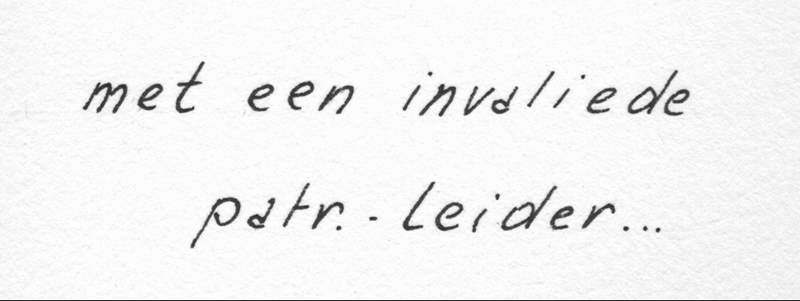 met een invaliede
patr.-leider...